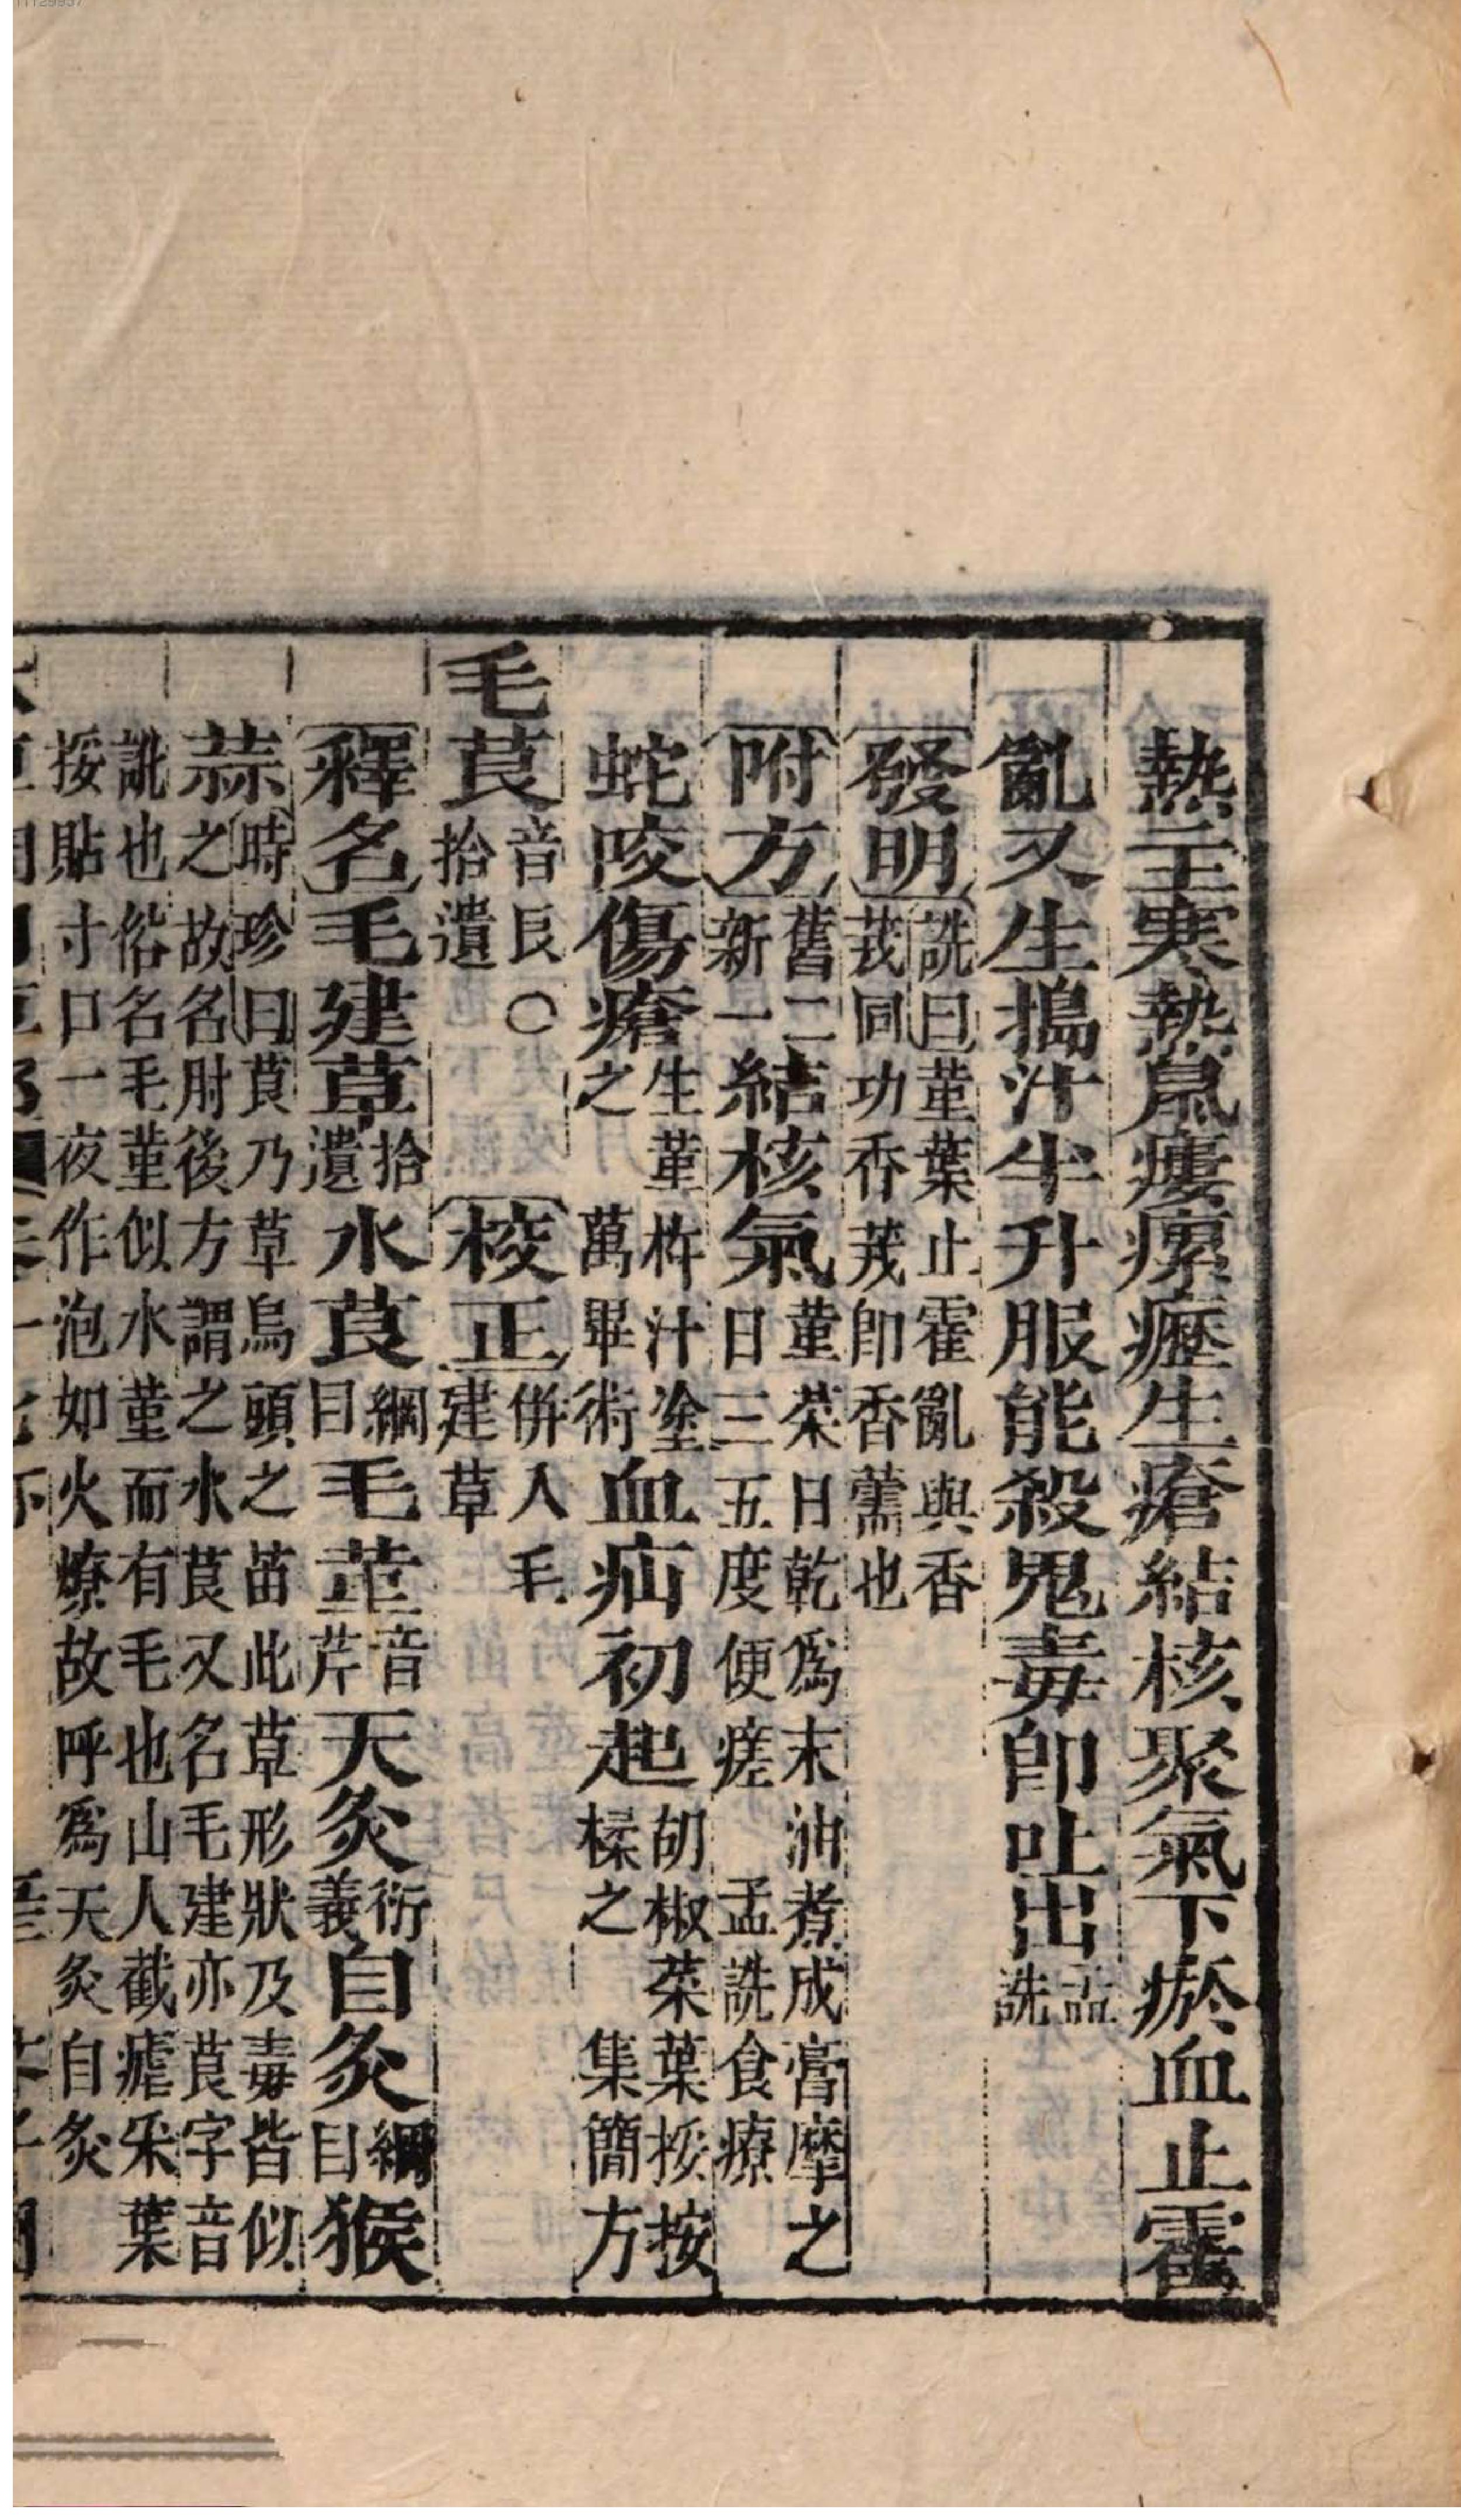 熱主寒熱鼠瘻瘰癧生瘡結核聚氣下瘀血止霍
亂又生搗汁半升服能殺鬼毒卽吐出孟詵
發明詵曰菫葉止霍亂與香茙同功香茙卽香薷也
附方舊二新一結核氣菫菜日乾爲末油煮成膏摩之日三五度便瘥孟詵食療
蛇咬傷瘡生菫杵汁塗之萬畢術血疝初起胡椒菜葉挼按揉之集簡方
毛茛音艮○拾遺校正併入毛建草
釋名毛建草拾遺水茛綱目毛菫音芹天灸衍義自灸綱目猴
蒜時珍曰茛乃草烏頭之苗此草形狀及毒皆似之故名肘後方謂之水茛又名毛建亦茛字音
訛也俗名毛菫似水菫而有毛也山人截瘧采葉挼貼寸口一夜作泡如火燎故呼爲天灸自灸